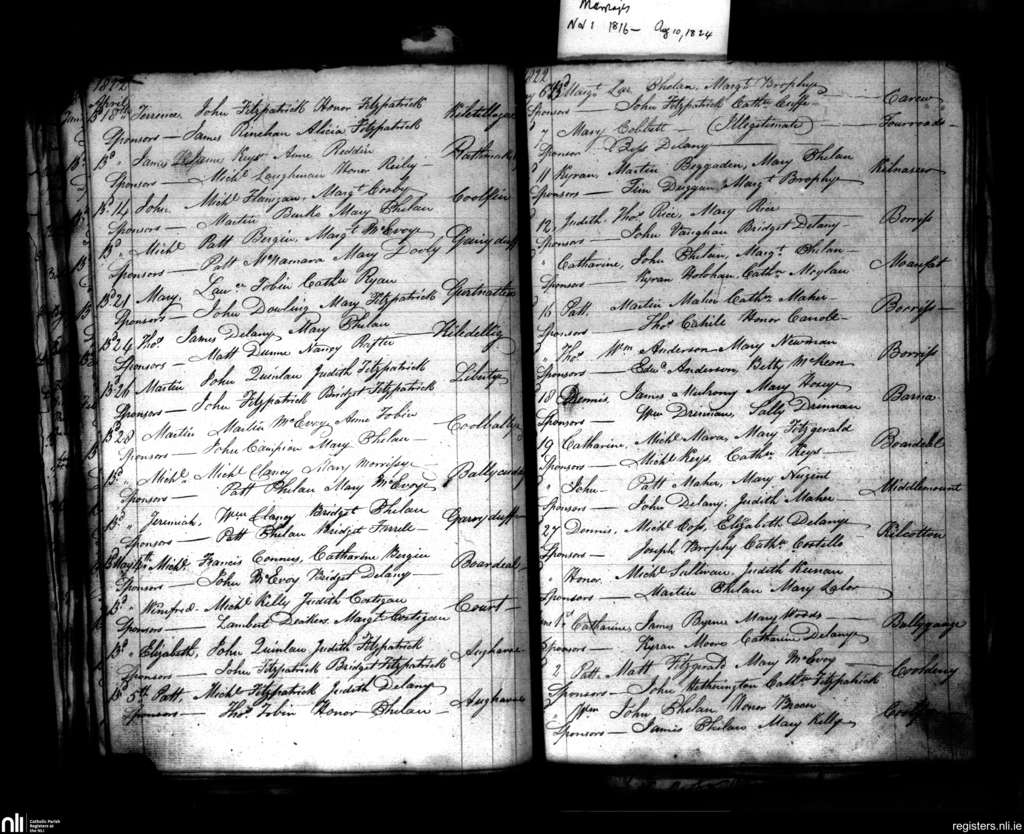 Marriages
Nov 1 1816 — Aug 10, 1824
1822
April
Bd 18th Terence, John Fitzpatrick Honor Fitzpatrick
Sponsors — James Rinehan Alicia Fitzpatrick
Bd James Keys Anne Reddin
Sponsors — Michl Loughman Honor Reily
Bd 14 John, Michl Flanigan, Margt Cosby Coolfin
Sponsors — Martin Burke Mary Phelan
Bd Michl Patt Bergin, Margt McEvoy Garryduff
Sponsors — Patt McNamara Mary Dooly
Bd 21 Mary, Lawce Tobin Cathn Ryan
Sponsors — John Dowling Mary Fitzpatrick
Bd 24 Thos James Delany Mary Phelan Kildellig
Sponsors — Matt Dunne Nancy
Bd 26 Martin John Quinlan Judith Fitzpatrick Liberty
Sponsors — John Fitzpatrick Bridget Fitzpatrick
Bd 28 Martin Martin McEvoy Anne Tobin Coolbally
Sponsors — John Campion Mary Phelan —
Bd " Michl Michl Clancy Mary Morrissy
Sponsors — Patt Phelan Mary McEvoy
Bd " Jeremiah, Wm Clancy Bridget Phelan Garryduff
Sponsors — Patt Phelan Bridget
Bd May Michl Francis Connors, Catharine Bergin Boardeal
Sponsors — John McEvoy Bridget Delany
Bd " Winifred Michl Kelly Judith Costigan Court —
Sponsors — Lambert Margt Costigan
Bd " Elizabeth, John Quinlan Judith Fitzpatrick
Sponsors — John Fitzpatrick Bridget Fitzpatrick
Bd 5th Patt, Michl Fitzpatrick Judith Delany
Sponsors — Thos Tobin Honor Phelan —
1822
6 Bd Margt Law Phelan, Margt Brophy Carew
Sponsors — John Fitzpatrick Cathn Cuffe
7 Mary Cobbett — (Illegitimate) — Fourroads
Sponsor Delany
11 Kyran, Martin Boggaden, Mary Phelan
Sponsors — Fein Duggan, Margt Brophy
12, Judith, Thos Rice, Mary Rice Borriss
Sponsors — John Vaughan Bridget Delany
" Catharine, John Phelan, Margt Phelan Moanfat
Sponsors — Kyran Holohan, Cathn Moylan
16 Patt, Martin Maher Cathn Maher — Borriss —
Sponsors — Thos Cahill Honor Carroll —
" Thos Wm Anderson Mary Newman Borriss
Sponsors — Edwd Anderson, Betty McKeon
18 Dennis, James Mulrony Mary Hoey Barna
Sponsors — Wm Drennan, Sally Drennan
19 Catharine, Michl Mara, Mary Fitzgerald Boardeal
Sponsors — Michl Keys, Cathn Keys —
" John — Patt Maher, Mary Nugent Middlemount
Sponsors — John Delany, Judith Maher —
27 Dennis, Michl Coss, Elizabeth Delany Kilcotton
Sponsors — Joseph Brophy Cathn Costello
" Honor, Michl Sullivan, Judith Keenan
Sponsors — Martin Phelan Mary Lalor
1st Catharine, James Byrne Mary Woods Ballygauge
Sponsors — Kyran Moore Catharine Delany
2 Patt, Matt Fitzgerald Mary McEvoy — Cooldeny
Sponsors — John Hetherington Cathn Fitzpatrick
Wm John Phelan Honor Breen
Sponsors — James Phelan Mary Kelly
nli
Catholic Parish
Registers at
the NLI
registers.nli.ie